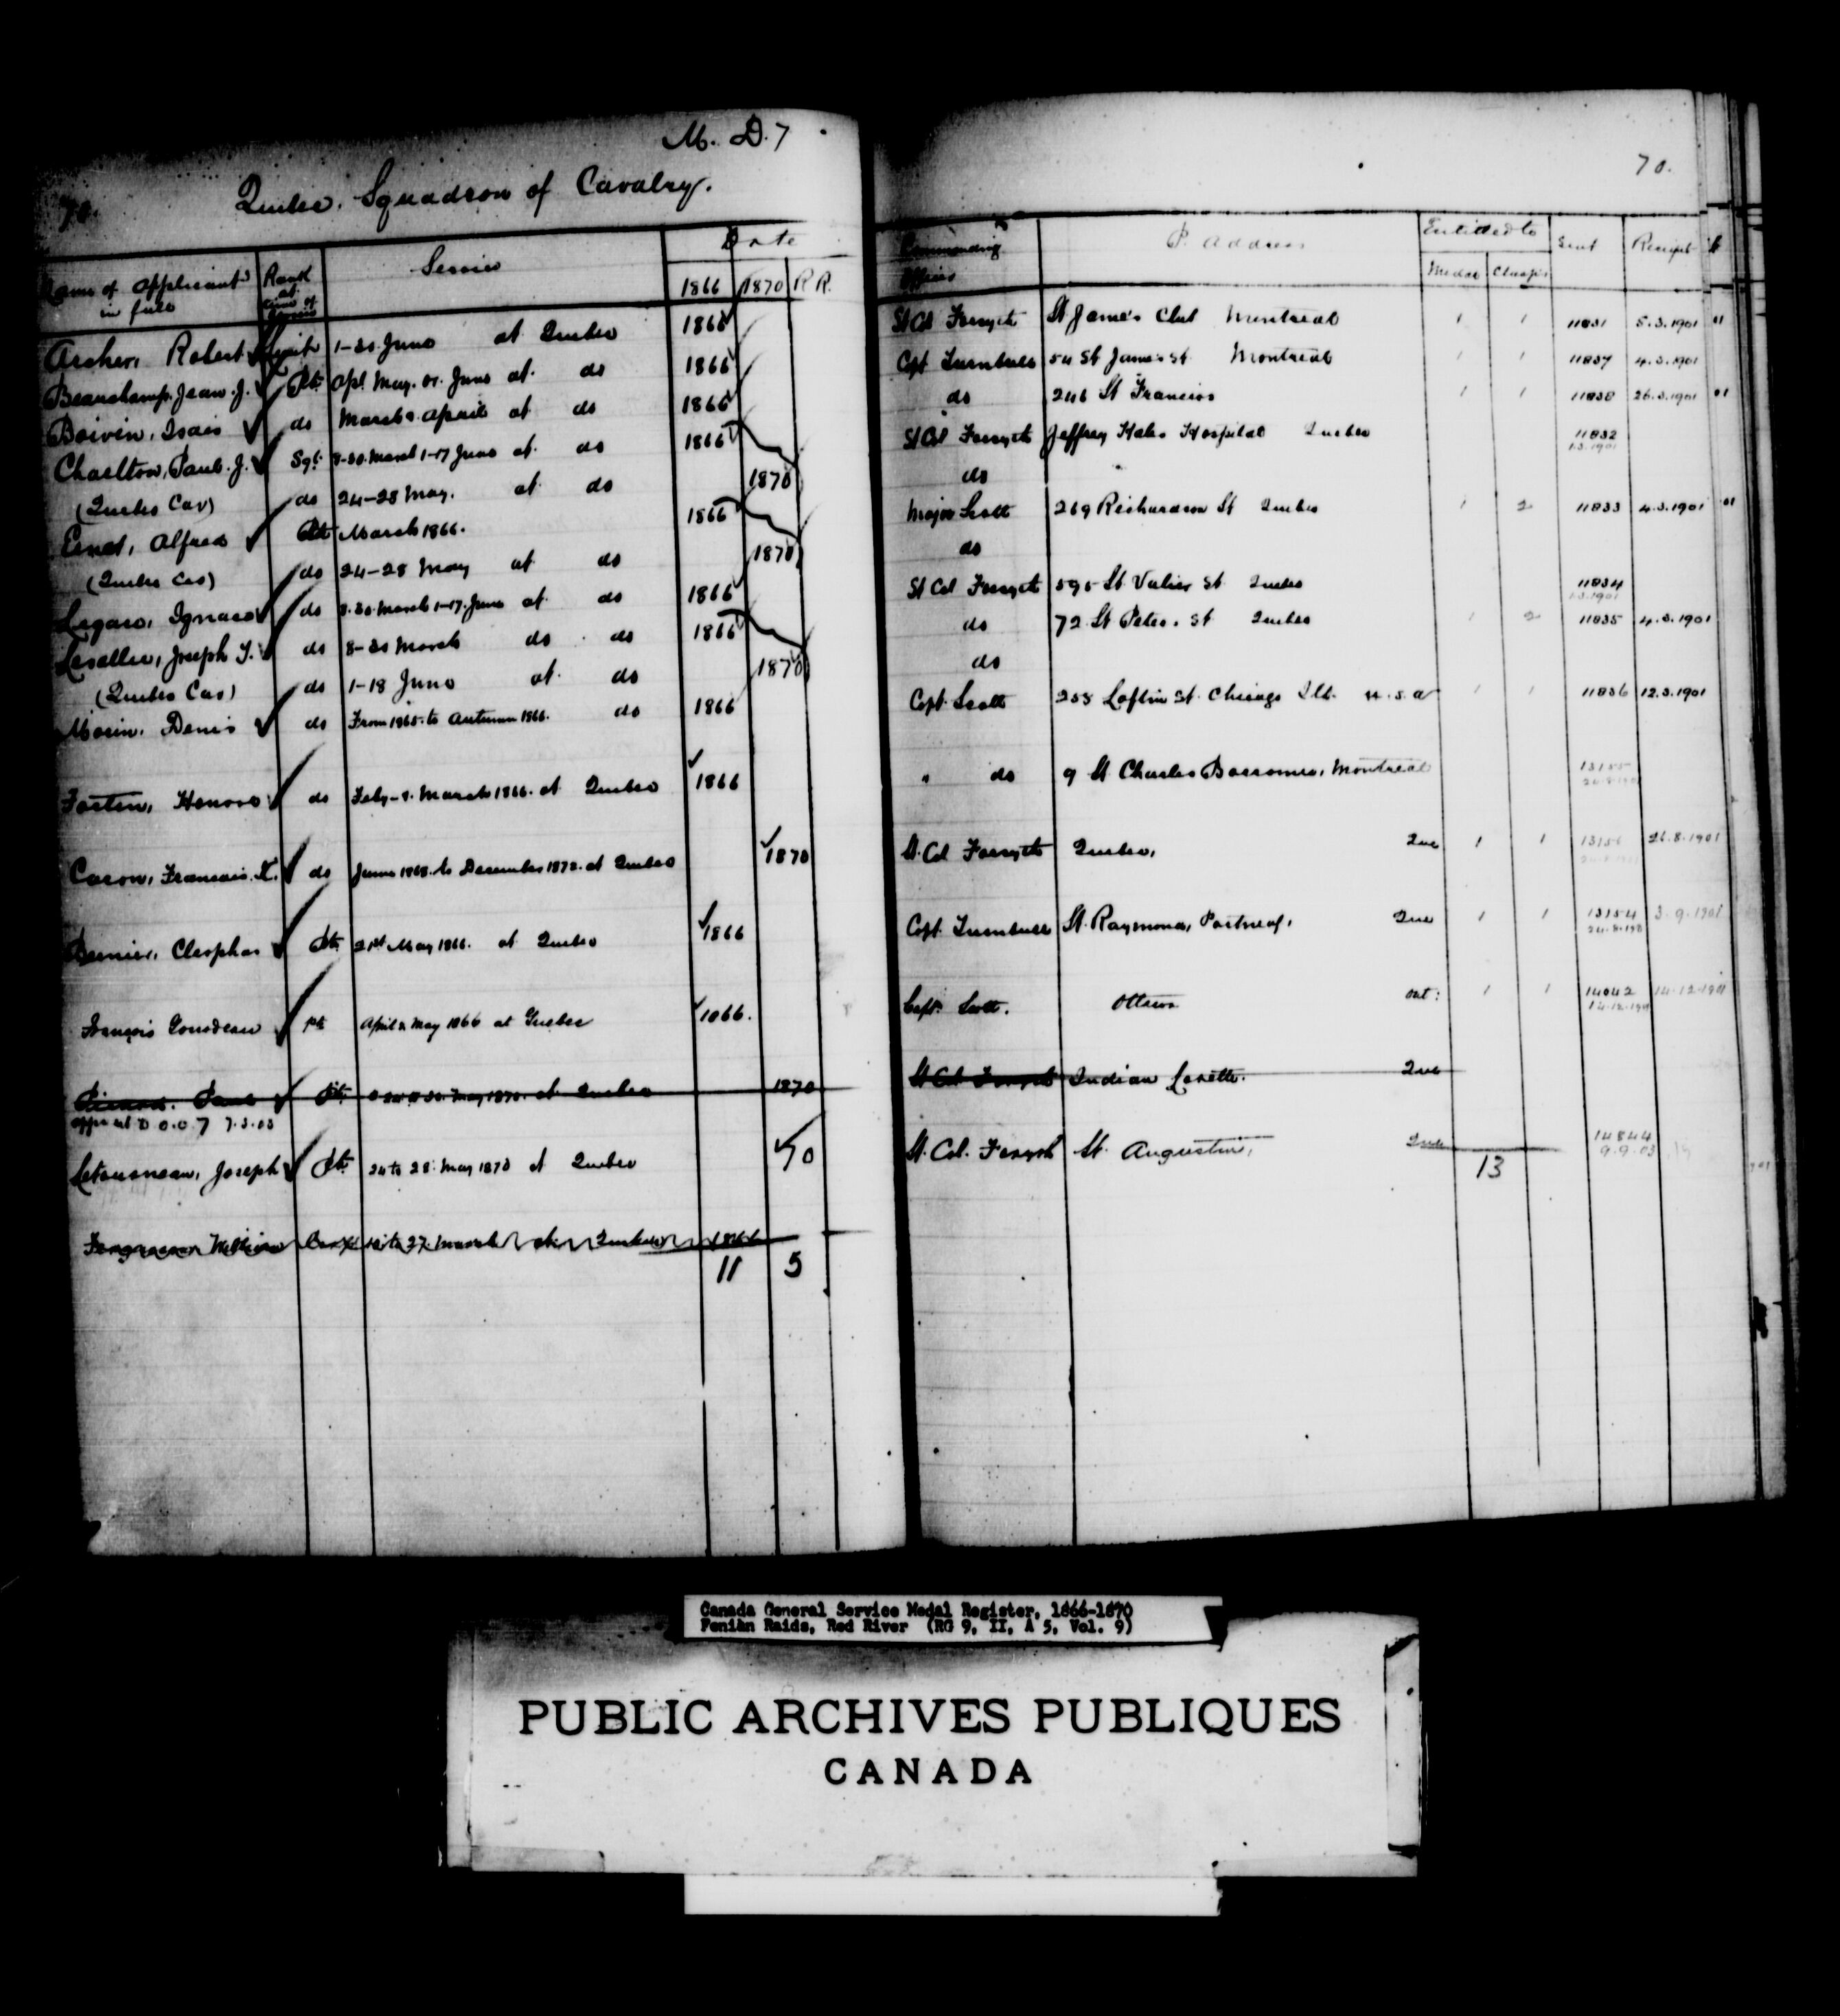 M. D. 7
70.
Quebec. Squadron of Cavalry.
Name of Applicant in full Rank at time of Service Service Date 1866 1870 R R.
Archer, Robert Lieut 1-20 June at Quebec 1866
Beauchamp, Jean. J. Pte Apl. May. or. June at do 1866
Boivin, Isaie do March & April at do 1866
Charlton, Paul. J. Sgt. 8-30. March 1-17 June at do 1866
(Quebec Cav) do 24-28 May. at do 1870
Ernst, Alfred Pte March 1866. 1866
(Quebec Cav) do 24-28 May at do 1870
Legare, Ignace do 8-30. March 1-17. June at do 1866
Lesellier, Joseph do 8-30 March do do 1866
(Quebec Cav) do 1-18 June at do 1870
Morin, Denis do From 1865. to Autumn 1866. do 1866
Fortin, Honore do Feby - March 1866. at Quebec 1866
Caron, Francois. X. do June 1868. to December 1872. at Quebec 1870
Bernier, Cleophas Pte 21st May 1866. at Quebec 1866
François Pte April & May 1866 at Quebec 1866.
Picard. Paul Pte May 1870. at Quebec 1870
D.O.C 7 7.3.03
Letourneau, Joseph Pte 24 to 28. May 1870 at Quebec 70
Fergusson William to 27. March at Quebec 1866
11 5
70.
Commanding Officer P. Address Entitled to Medal Clasps Sent Receipt
Lt Col Forsyth St James Club Montreal 1 1 11831 5.3.1901 01
Capt Turnbull 54 St James St Montreal 1 1 11837 4.3.1901
do 246 St Francios 1 1 11838 26.3.1901 01
Lt Col Forsyth Jeffrey Hales Hospital Quebec 11832
1.3.1901
do
Major Scott 269 Richardson St Quebec 1 2 11833 4.3.1901 01
do
Lt Col Forsyth 595 St. Valier St. Quebec 11834
1.3.1901
do 72 St Peter. St Quebec 1 2 11835 4.3.1901
do
Capt. Scott 255 Loflin St. Chicago Ill. U.S.A 1 1 11836 12.3.1901
" do 9 St Charles Borromee, Montreal 13155
Lt. Col Forsyth Quebec, Que 1 1 13156 26.8.1901
Capt. Turnbull St. Raymond, Portneuf, Que 1 1 13154 3.9.1901
24.8.1901
Capt. Scott. Ottawa Ont: 1 1 14042 14.12.1901
14.12.1901
Lt Col Forsyth Indian Lorette. Que
Lt. Col. Forsyth St. Augustin, Que 14844
9.9.03
13
Canada General Service Medal Register, 1866-1870
Fenian Raids, Red River (RG 9, II, A 5, Vol. 9)
PUBLIC ARCHIVES PUBLIQUES
CANADA